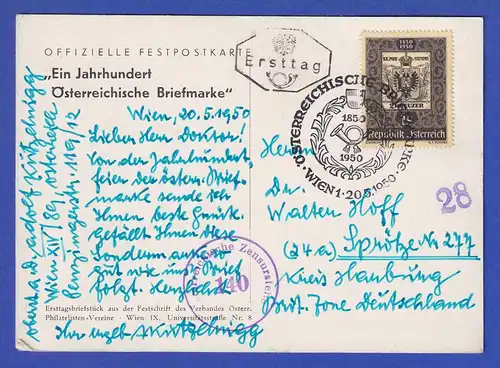 OFFIZIELLE FESTPOSTKARTE
„Ein Jahrhundert
Österreichische Briefmarke“
Wien, 20.5.1950
Lieber Herr Doktor!
Von der Jahrhundert
feier der österr. Brief-
marke sende ich
Ihnen beste
gefällt Ihnen diese
Sondermarke
gut wie uns? Brief
folgt. Herzlichst
Ihr
Ersttagsbriefstück aus der Festschrift des Verbandes Österr.
Philatelisten-Vereine · Wien IX, Universitätsstraße Nr. 8
Adolf
Wien XIV/89, Österreich
119/12
Ersttag
1850
1950
Republik Österreich
ÖSTERREICHISCHE
1850
1950
WIEN 1 · 20.5.1950
Zensurstelle
140
28
Herrn
Dr.
Walter Hoff
(24a) Sprötze Nr 277
Kreis Harburg
Brit. Zone Deutschland